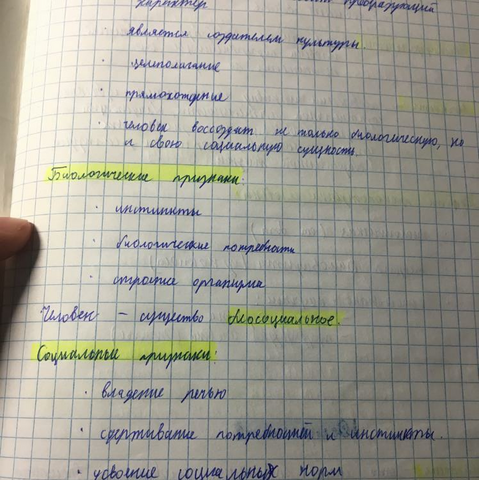 характер преобразующий
· является создателем культуры.
· целеполагание
· прямохождение
· человек воссоздаёт не только биологическую, но
и свою социальную сущность.
Биологические признаки:
· инстинкты
· биологические потребности
· строение организма
Человек – существо биосоциальное.
Социальные признаки:
· владение речью
· сдерживание потребностей и инстинкты.
· усвоение социальных норм